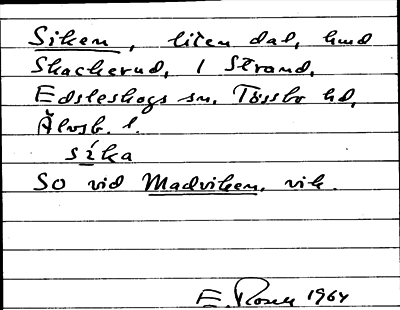 Siken, liten dal, hmd
Skackerud, 1 Strand,
Edsleskogs sn, Tössbo hd,
Älvsb. l.
síka
So vid Madviken, vik.
E. Rosell 1964